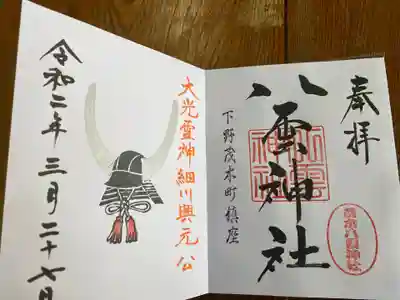 奉拝
八雲神社
下野茂木町鎮座
大光霊神細川興元公
令和二年三月二十七日